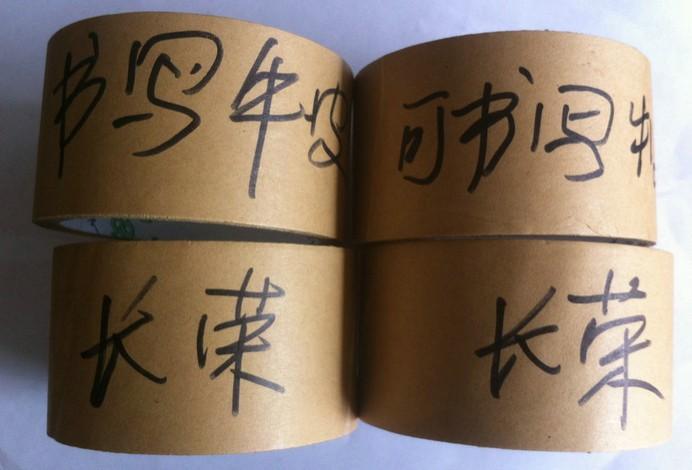 书写牛皮
可书写牛
长荣
长荣